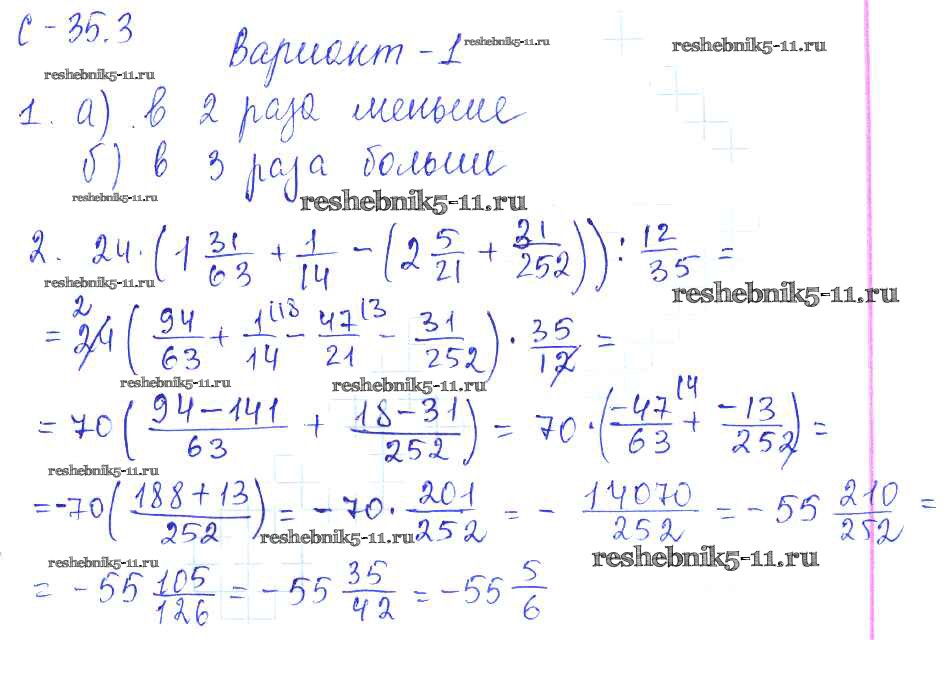 С-35.3
Вариант-1 reshebnik5-11.ru
reshebnik5-11.ru
reshebnik5-11.ru
1. а) в 2 раза меньше
б) в 3 раза больше
reshebnik5-11.ru
reshebnik5-11.ru
2. 24·(1 31/63 + 1/14 − (2 5/21 + 31/252)) : 12/35 =
reshebnik5-11.ru
reshebnik5-11.ru
= 24 2 (94/63 + 1(18/14 − 47(3/21 − 31/252) · 35/12 =
reshebnik5-11.ru
reshebnik5-11.ru
= 70 (94−141/63 + 18−31/252) = 70·(−47(4/63 + −13/252) =
reshebnik5-11.ru
=-70(188+13/252) = −70·201/252 = − 14070/252 = −55 210/252 =
reshebnik5-11.ru
reshebnik5-11.ru
reshebnik5-11.ru
= −55 105/126 = −55 35/42 = −55 5/6